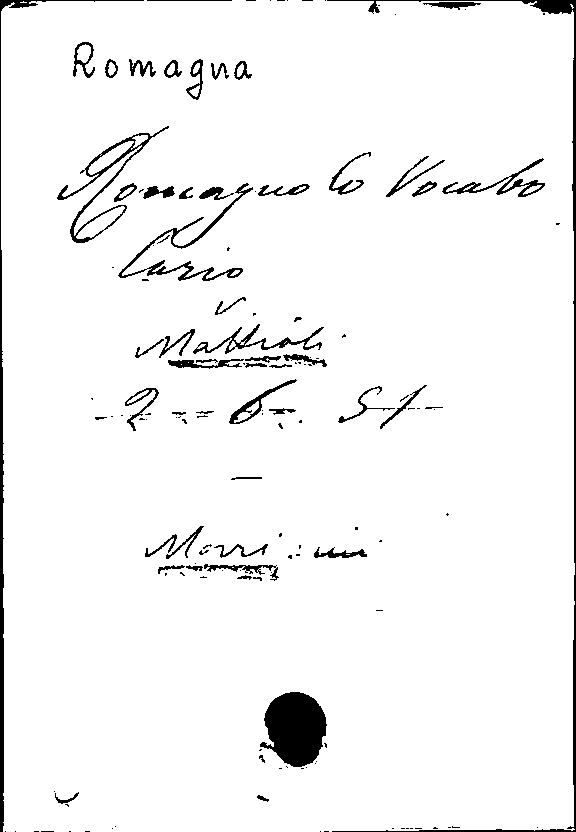 Romagna
Romagnolo Vocabo
lario
V.
Mattioli
2 - 6 - 51
—
Morri